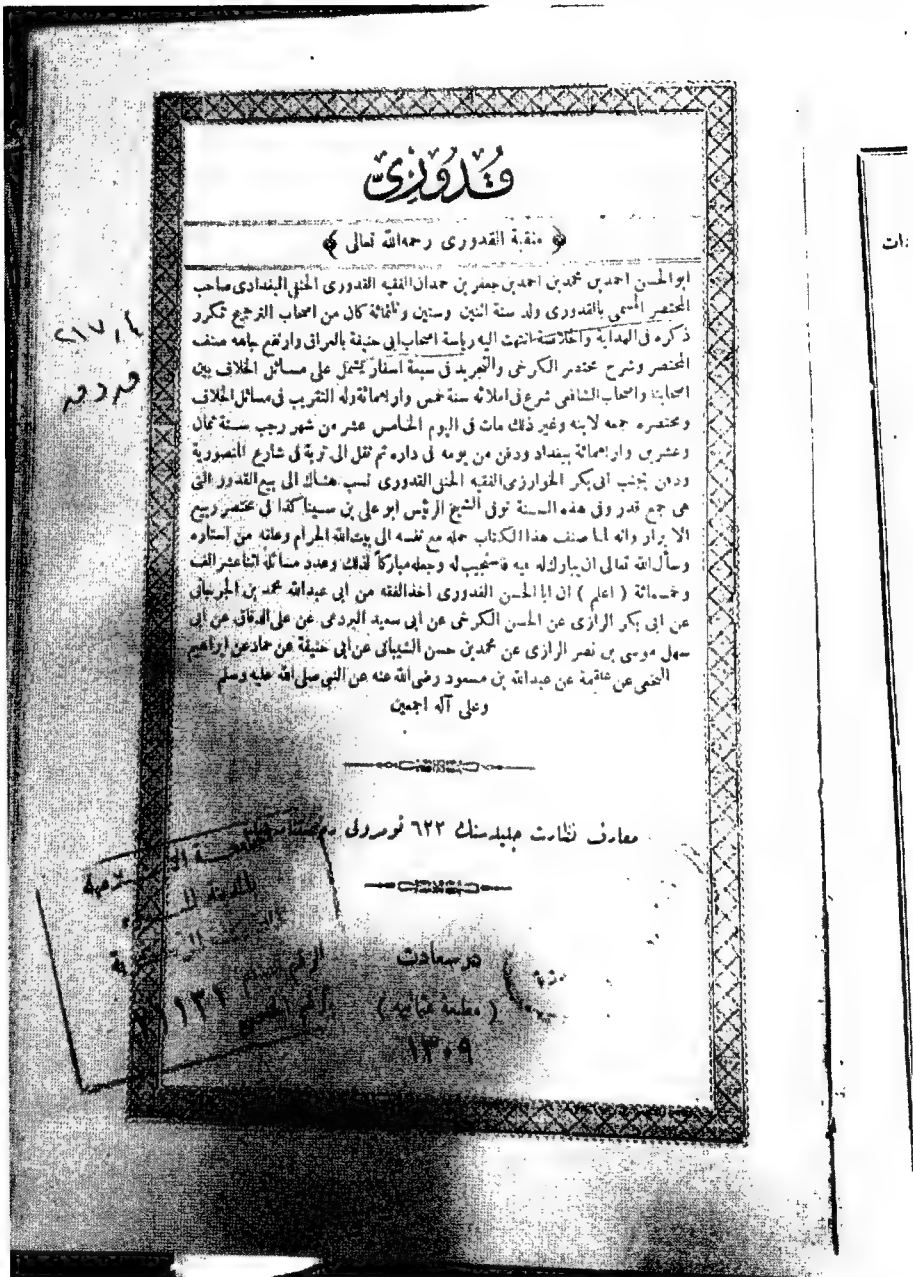 قُدُورِىّ
﴿ منقبة القدورى رحمه الله تعالى ﴾
ابو الحسن احمد بن محمد بن احمد بن جعفر بن حمدان الفقيه القدورى الحنفى البغدادى صاحب
المختصر المسمى بالقدورى ولد سنة اثنين وستين وثلثمائة كان من اصحاب الترجيح تكرر
ذكره فى الهداية والخلاصة انتهت اليه رياسة اصحاب ابى حنيفة بالعراق وارتفع جاهه صنف
المختصر وشرح مختصر الكرخى والتجريد فى سبعة اسفار يشتمل على مسائل الخلاف بين
اصحابنا واصحاب الشافعى شرع فى املائه سنة خمس واربعمائة وله التقريب فى مسائل الخلاف
ومختصره جمعه لابنه وغير ذلك مات فى اليوم الخامس عشر من شهر رجب سنة ثمان
وعشرين واربعمائة ببغداد ودفن من يومه فى داره ثم نقل الى تربة فى شارع المنصورية
ودفن بجنب ابى بكر الخوارزمى الفقيه الحنفى القدورى نسب هناك الى بيع القدور التى
هى جمع قدر وفى هذه السنة توفى الشيخ الرئيس ابو على بن سينا كذا فى مختصر ربيع
الابرار وانه لما صنف هذا الكتاب حمله مع نفسه الى بيت الله الحرام وعلقه من استاره
وسأل الله تعالى ان يبارك له فيه فاستجيب له وجعله مباركا لذلك وعدد مسائله اثنا عشر الف
وخمسمائة ( اعلم ) ان ابا الحسن القدورى اخذ الفقه من ابى عبدالله محمد بن الجرجانى
عن ابى بكر الرازى عن الحسن الكرخى عن ابى سعيد البردعى عن على الدقاق عن ابى
سهل موسى بن نصر الرازى عن محمد بن حسن الشيبانى عن ابى حنيفة عن حماد عن ابراهيم
النخعى عن علقمة عن عبدالله بن مسعود رضى الله عنه عن النبى صلى الله عليه وسلم
وعلى آله اجمعين
معارف نظارت جليله سنك ٦٢٢ نومرولى
در سعادت
( مطبعة عثمانيه )
١٣٠٩
٢١٧,٤
ق د و ق
ذات